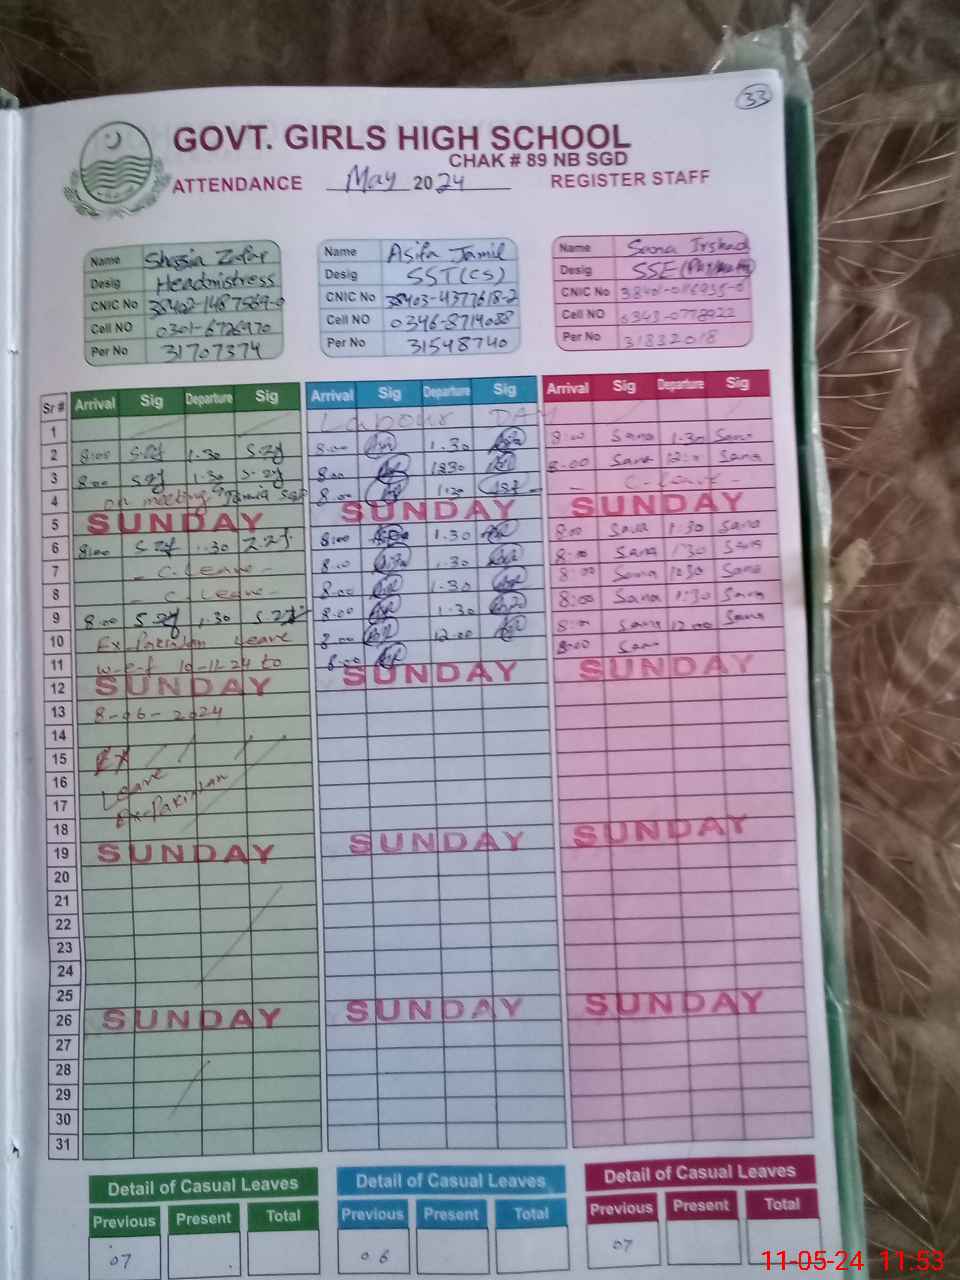 33
GOVT. GIRLS HIGH SCHOOL
CHAK # 89 NB SGD
ATTENDANCE May 2024 REGISTER STAFF
Name Shazia Zafar
Desig Headmistress
CNIC No
Cell NO 0301-6726970
Per No 31707374
Name Asifa Jamil
Desig SST(CS)
CNIC No 38403-4377618-2
Cell NO 0346-8714088
Per No 31548740
Name Sana Irshad
Desig SSE
CNIC No
Cell NO 0343-0778922
Per No 31832018
Sr # Arrival Sig Departure Sig Arrival Sig Departure Sig Arrival Sig Departure Sig
1 Labour DAY
2 8:00 1.30 8.00 1.30 8:00 Sana 1.30 Sana
3 8:00 1.30 8:00 1230 8.00 Sana Sana
4 on meeting 8.00 1:30 - C. Leave -
5 SUNDAY SUNDAY SUNDAY
6 8:00 1.30 8:00 1.30 8:00 Sana 1:30 Sana
7 - C. Leave - 8:00 1.30 8:00 Sana 1:30 Sana
8 - C. Leave - 8:00 1.30 8:00 Sana 1230 Sana
9 8:00 1.30 8:00 1.30 8:00 Sana 1:30 Sana
10 Ex Pakistan Leave 8:00 12:00 8:00 Sana 12:00 Sana
11 w-e-f to 8:00 8:00 Sana
12 SUNDAY SUNDAY SUNDAY
13 8-06-2024
14
15 Ex
16 Leave
17 Ex-Pakistan
18
19 SUNDAY SUNDAY SUNDAY
20
21
22
23
24
25
26 SUNDAY SUNDAY SUNDAY
27
28
29
30
31
Detail of Casual Leaves Detail of Casual Leaves Detail of Casual Leaves
Previous Present Total Previous Present Total Previous Present Total
07 06 07
11-05-24 11:53